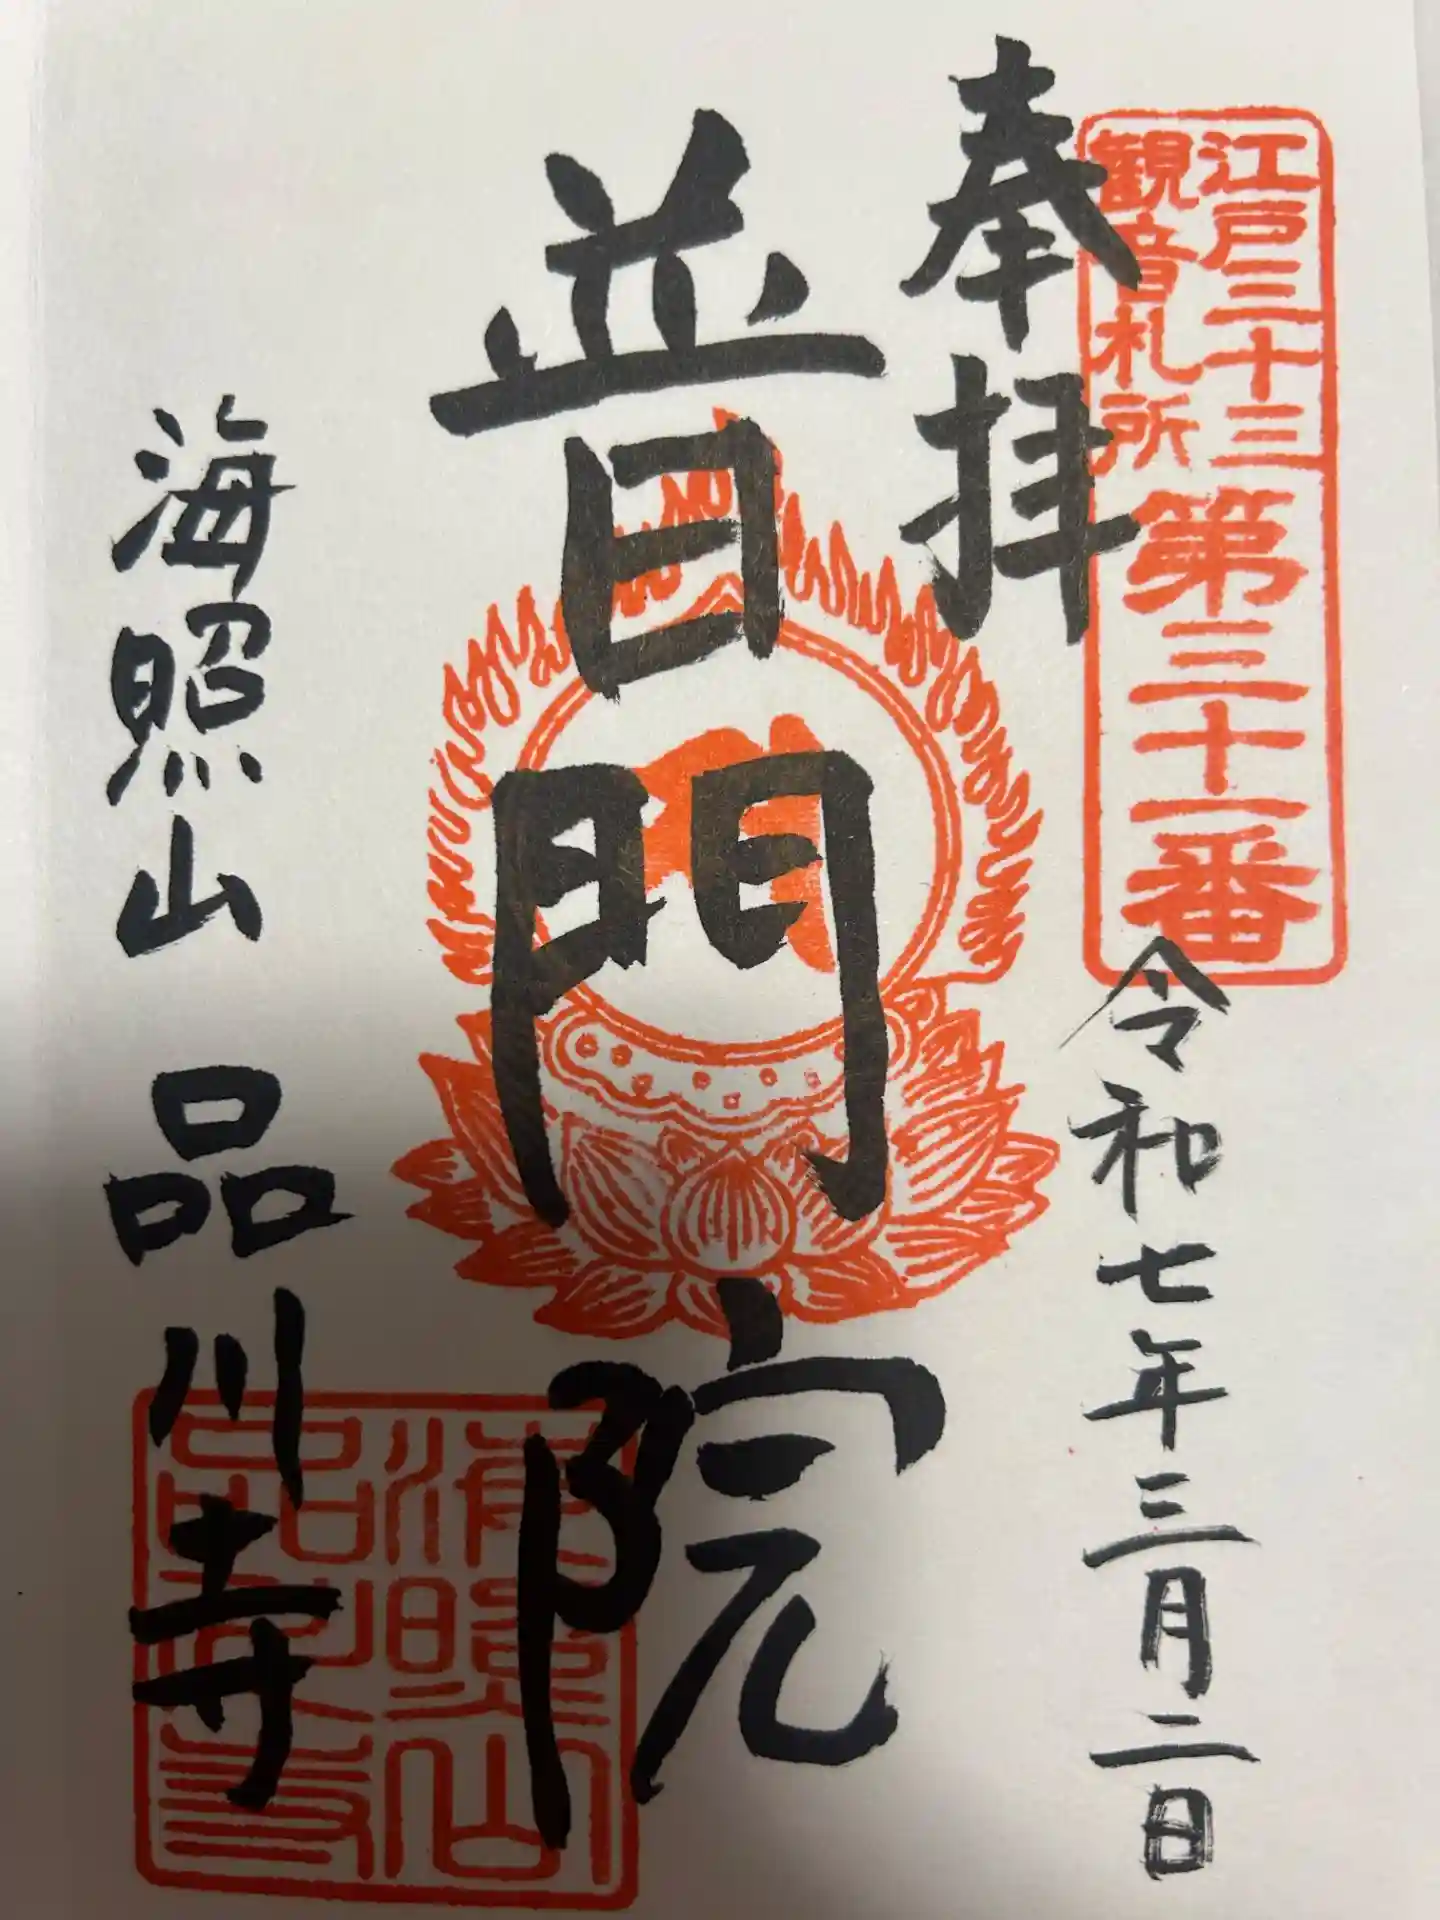 江戸三十三
観音札所
第三十一番
奉拝
令和七年三月二日
普門院
海照山 品川寺
海照山
品川寺